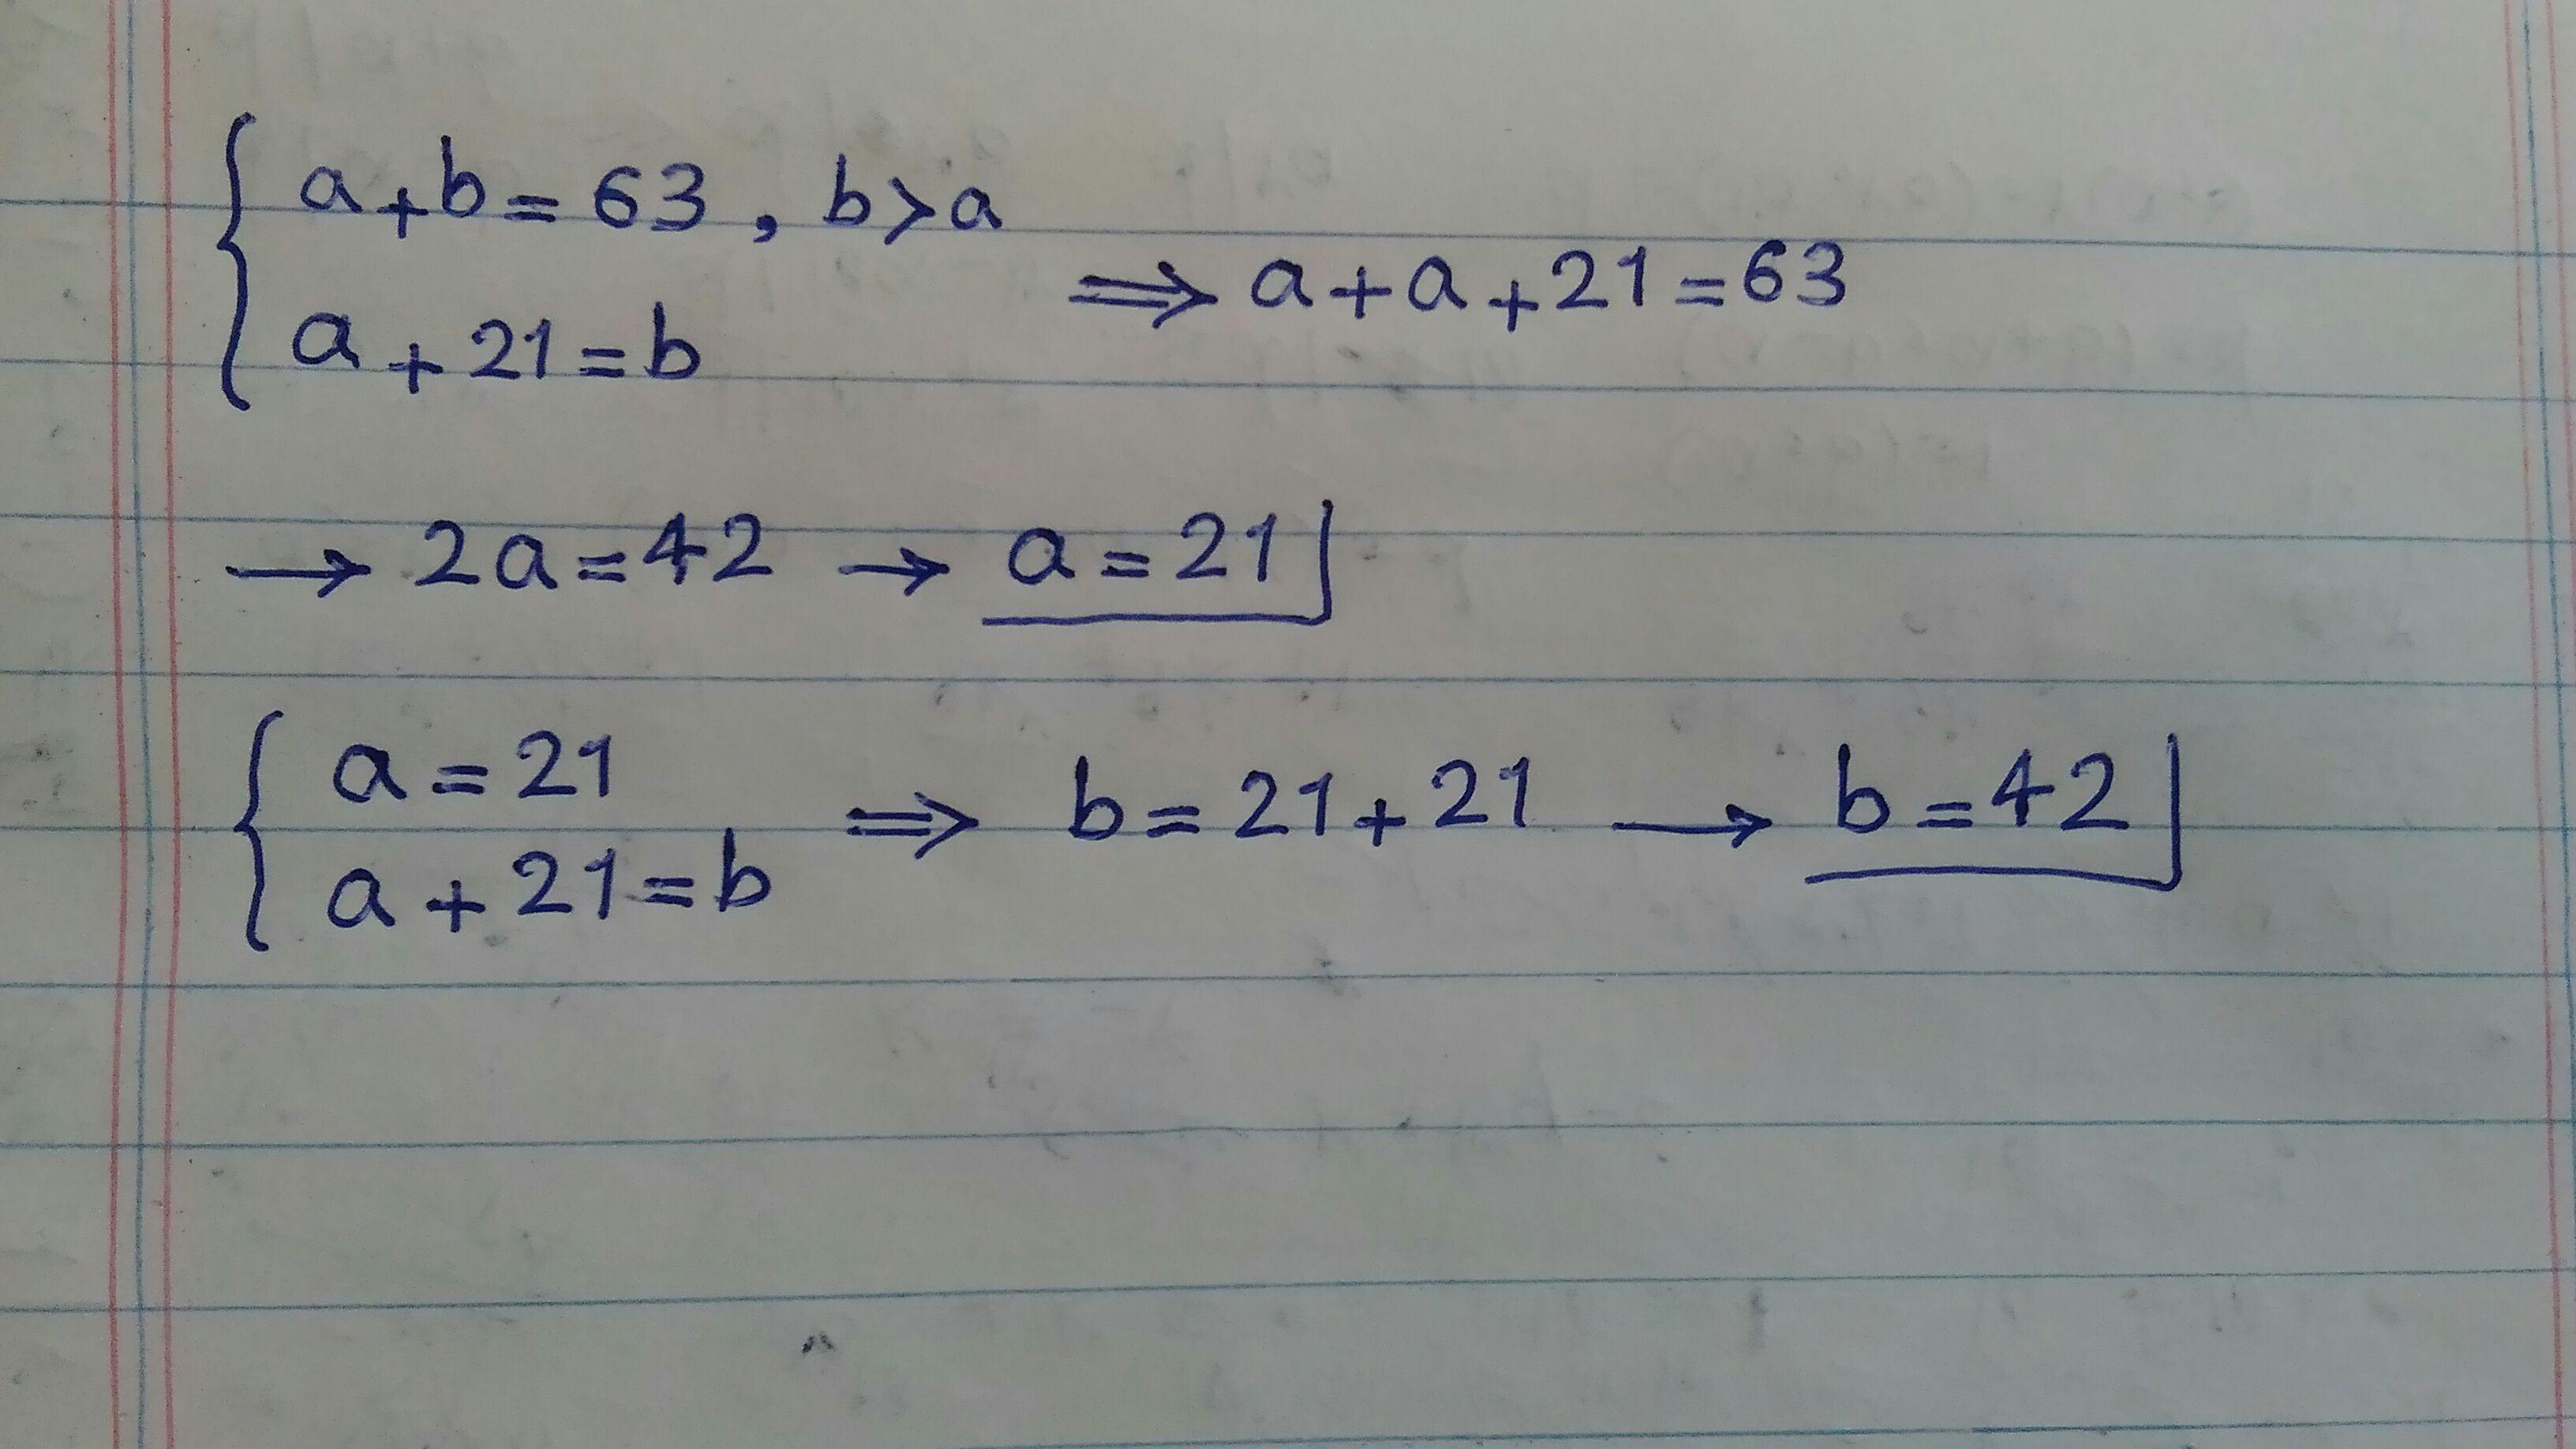 a+b=63, b>a
a+21=b
⟹ a+a+21=63
→ 2a=42 → a=21
a=21
a+21=b
⟹ b=21+21 → b=42